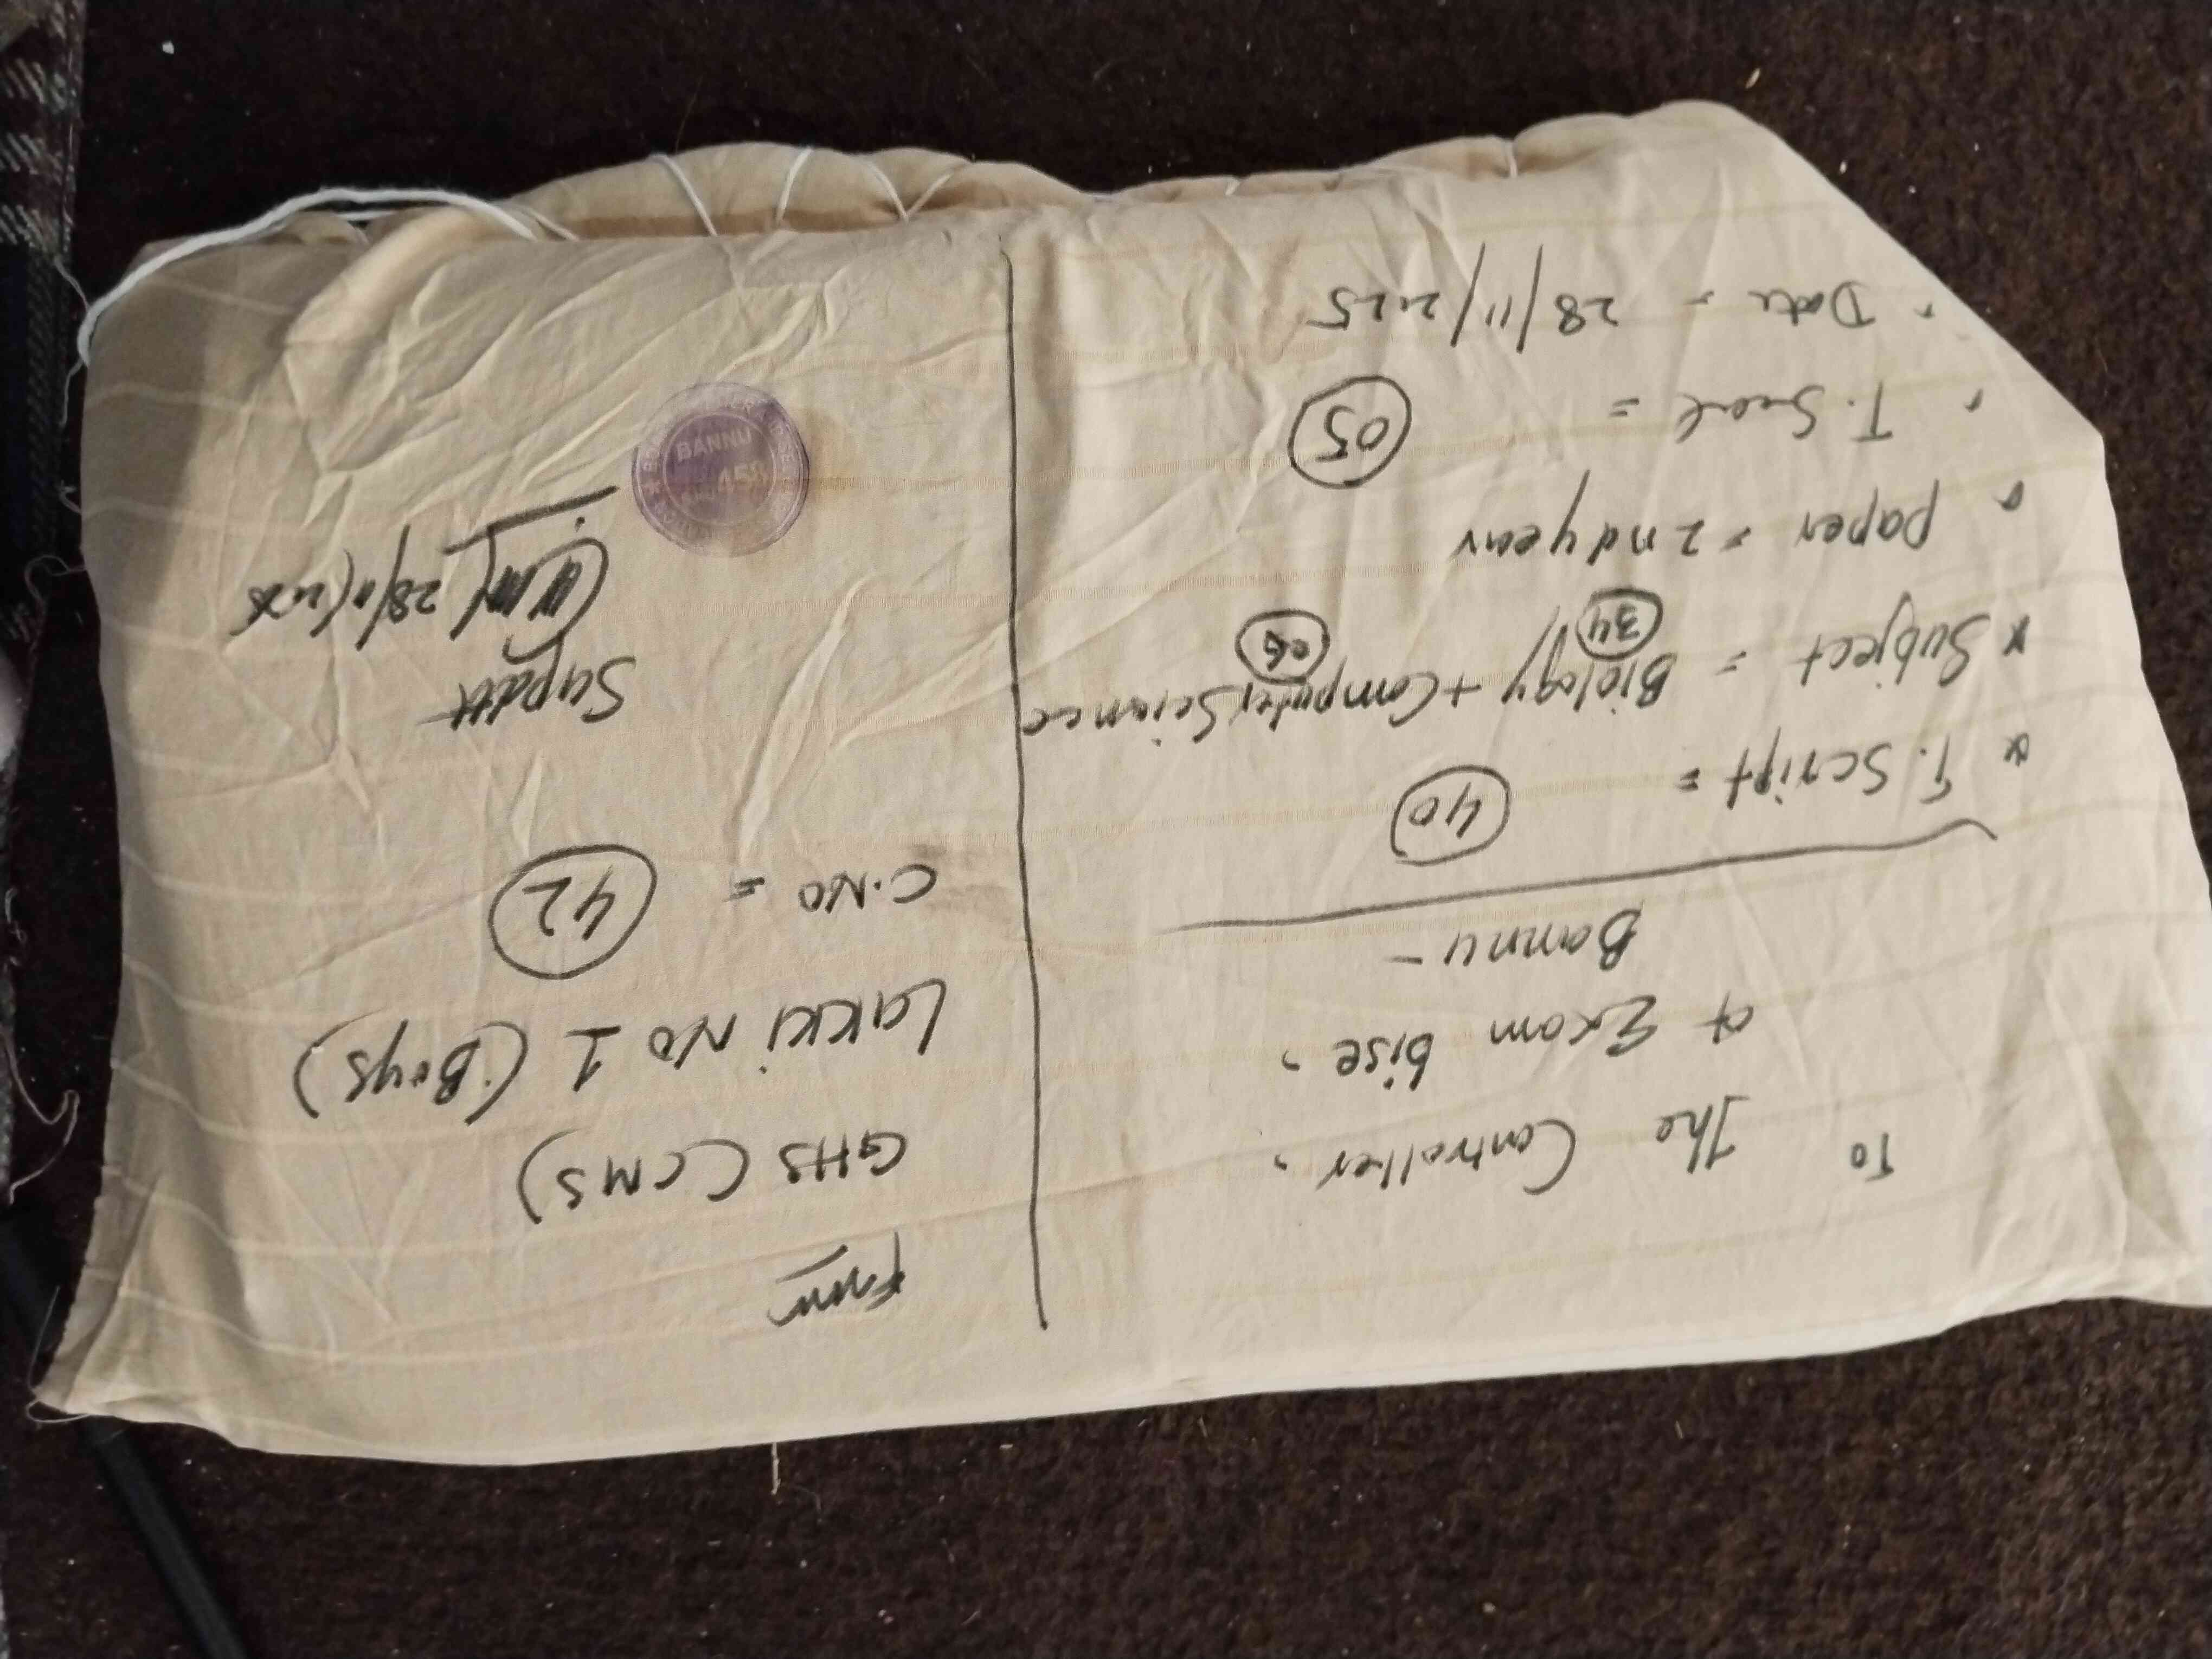 To
The Controller,
of Exam bise,
Bannu -
* T. Script = 40
* Subject = Biology 34 + Computer Science 06
paper = 2nd year
T. Seal = 05
Date - 28/11/2025
From
GHS (CMS)
Lakki No 1 (Boys)
C.No = 42
Supdtt
28/11/2025
BANNU
458